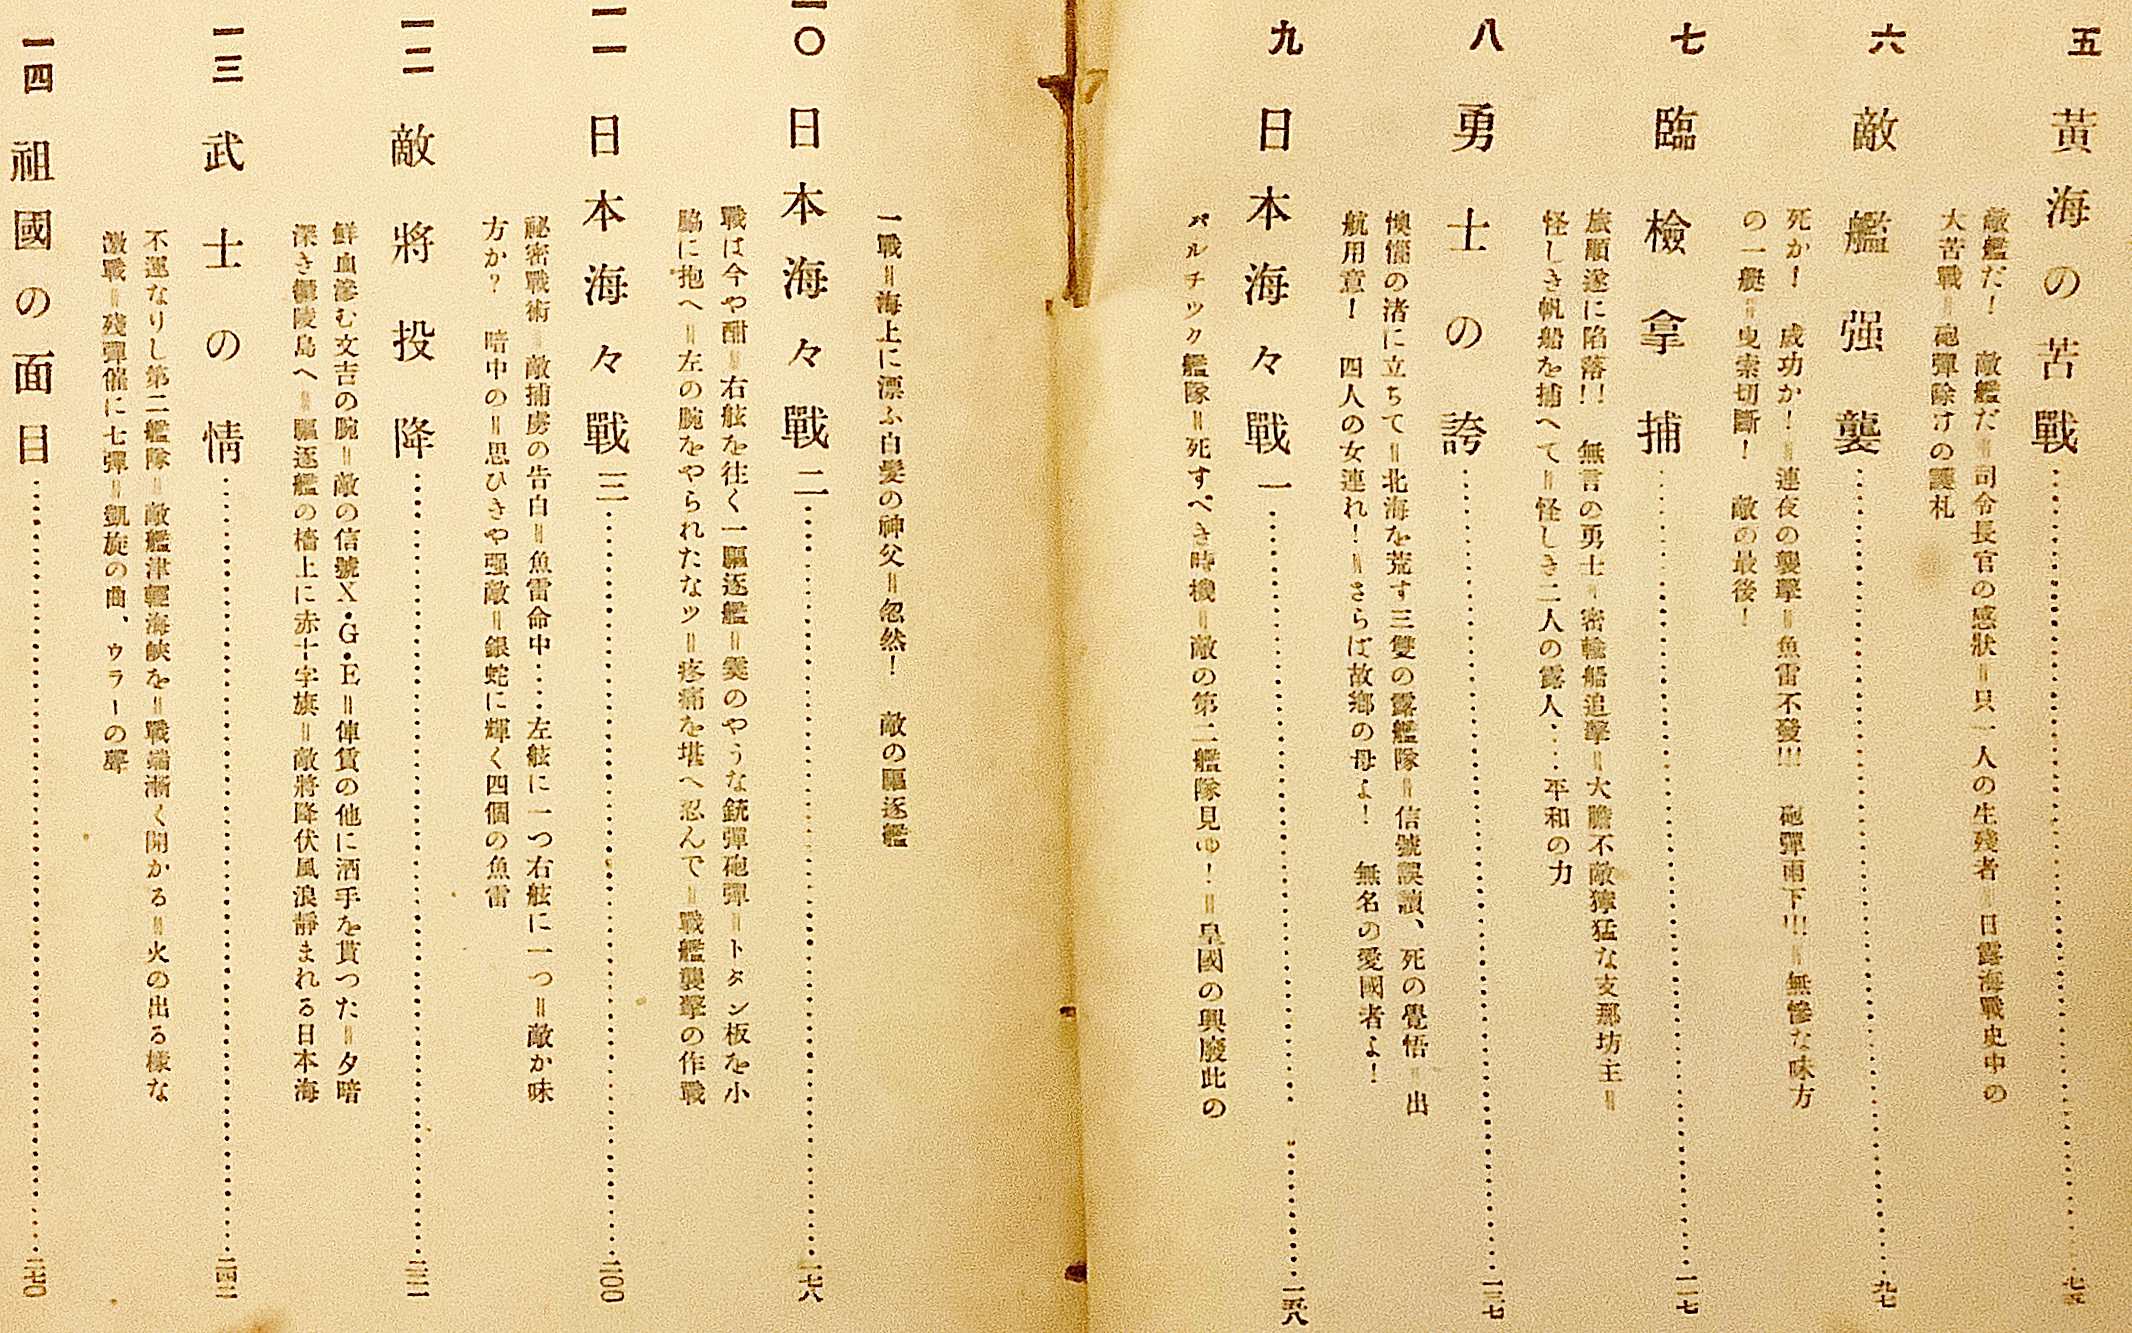 五 黃海の苦戰……七五
敵艦だ！ 敵艦だ＝司令長官の感狀＝只一人の生殘者＝日露海戰史中の
大苦戰＝砲彈除けの護札
六 敵艦强襲……九七
死か！ 成功か！＝連夜の襲擊＝魚雷不發!!! 砲彈雨下!!!＝無慘な味方
の一艇＝曳索切斷！ 敵の最後！
七 臨檢拿捕……一一七
旅順遂に陷落!! 無言の勇士＝密輸船追擊＝大膽不敵獰猛な支那坊主＝
怪しき帆船を捕へて＝怪しき二人の露人……平和の力
八 勇士の誇……一三七
懊惱の渚に立ちて＝北海を荒す三隻の露艦隊＝信號誤讀、死の覺悟＝出
航用意！ 四人の女連れ！＝さらば故鄕の母よ！ 無名の愛國者よ！
九 日本海々戰 一……一五八
バルチック艦隊＝死すべき時機＝敵の第二艦隊見ゆ！＝皇國の興廢此の
一戰＝海上に漂ふ白髮の神父＝忽然！ 敵の驅逐艦
一〇 日本海々戰 二……一七八
戰は今や酣＝右舷を往く一驅逐艦＝霙のやうな銃彈砲彈＝トタン板を小
脇に抱へ＝左の腕をやられたなッ＝疼痛を堪へ忍んで＝戰艦襲擊の作戰
一一 日本海々戰 三……二〇〇
祕密戰術＝敵捕虜の告白＝魚雷命中……左舷に一つ右舷に一つ＝敵か味
方か？ 暗中の＝思ひきや强敵＝銀蛇に輝く四個の魚雷
一二 敵將投降……二二一
鮮血滲む文吉の腕＝敵の信號X・G・E＝俥賃の他に酒手を貰つた＝夕暗
深き鬱陵島へ＝驅逐艦の檣上に赤十字旗＝敵將降伏風浪靜まれる日本海
一三 武士の情……二四二
不運なりし第二艦隊＝敵艦津輕海峽を＝戰端漸く開かる＝火の出る樣な
激戰＝殘彈僅に七彈＝凱旋の曲、ウラーの聲
一四 祖國の面目……二七〇